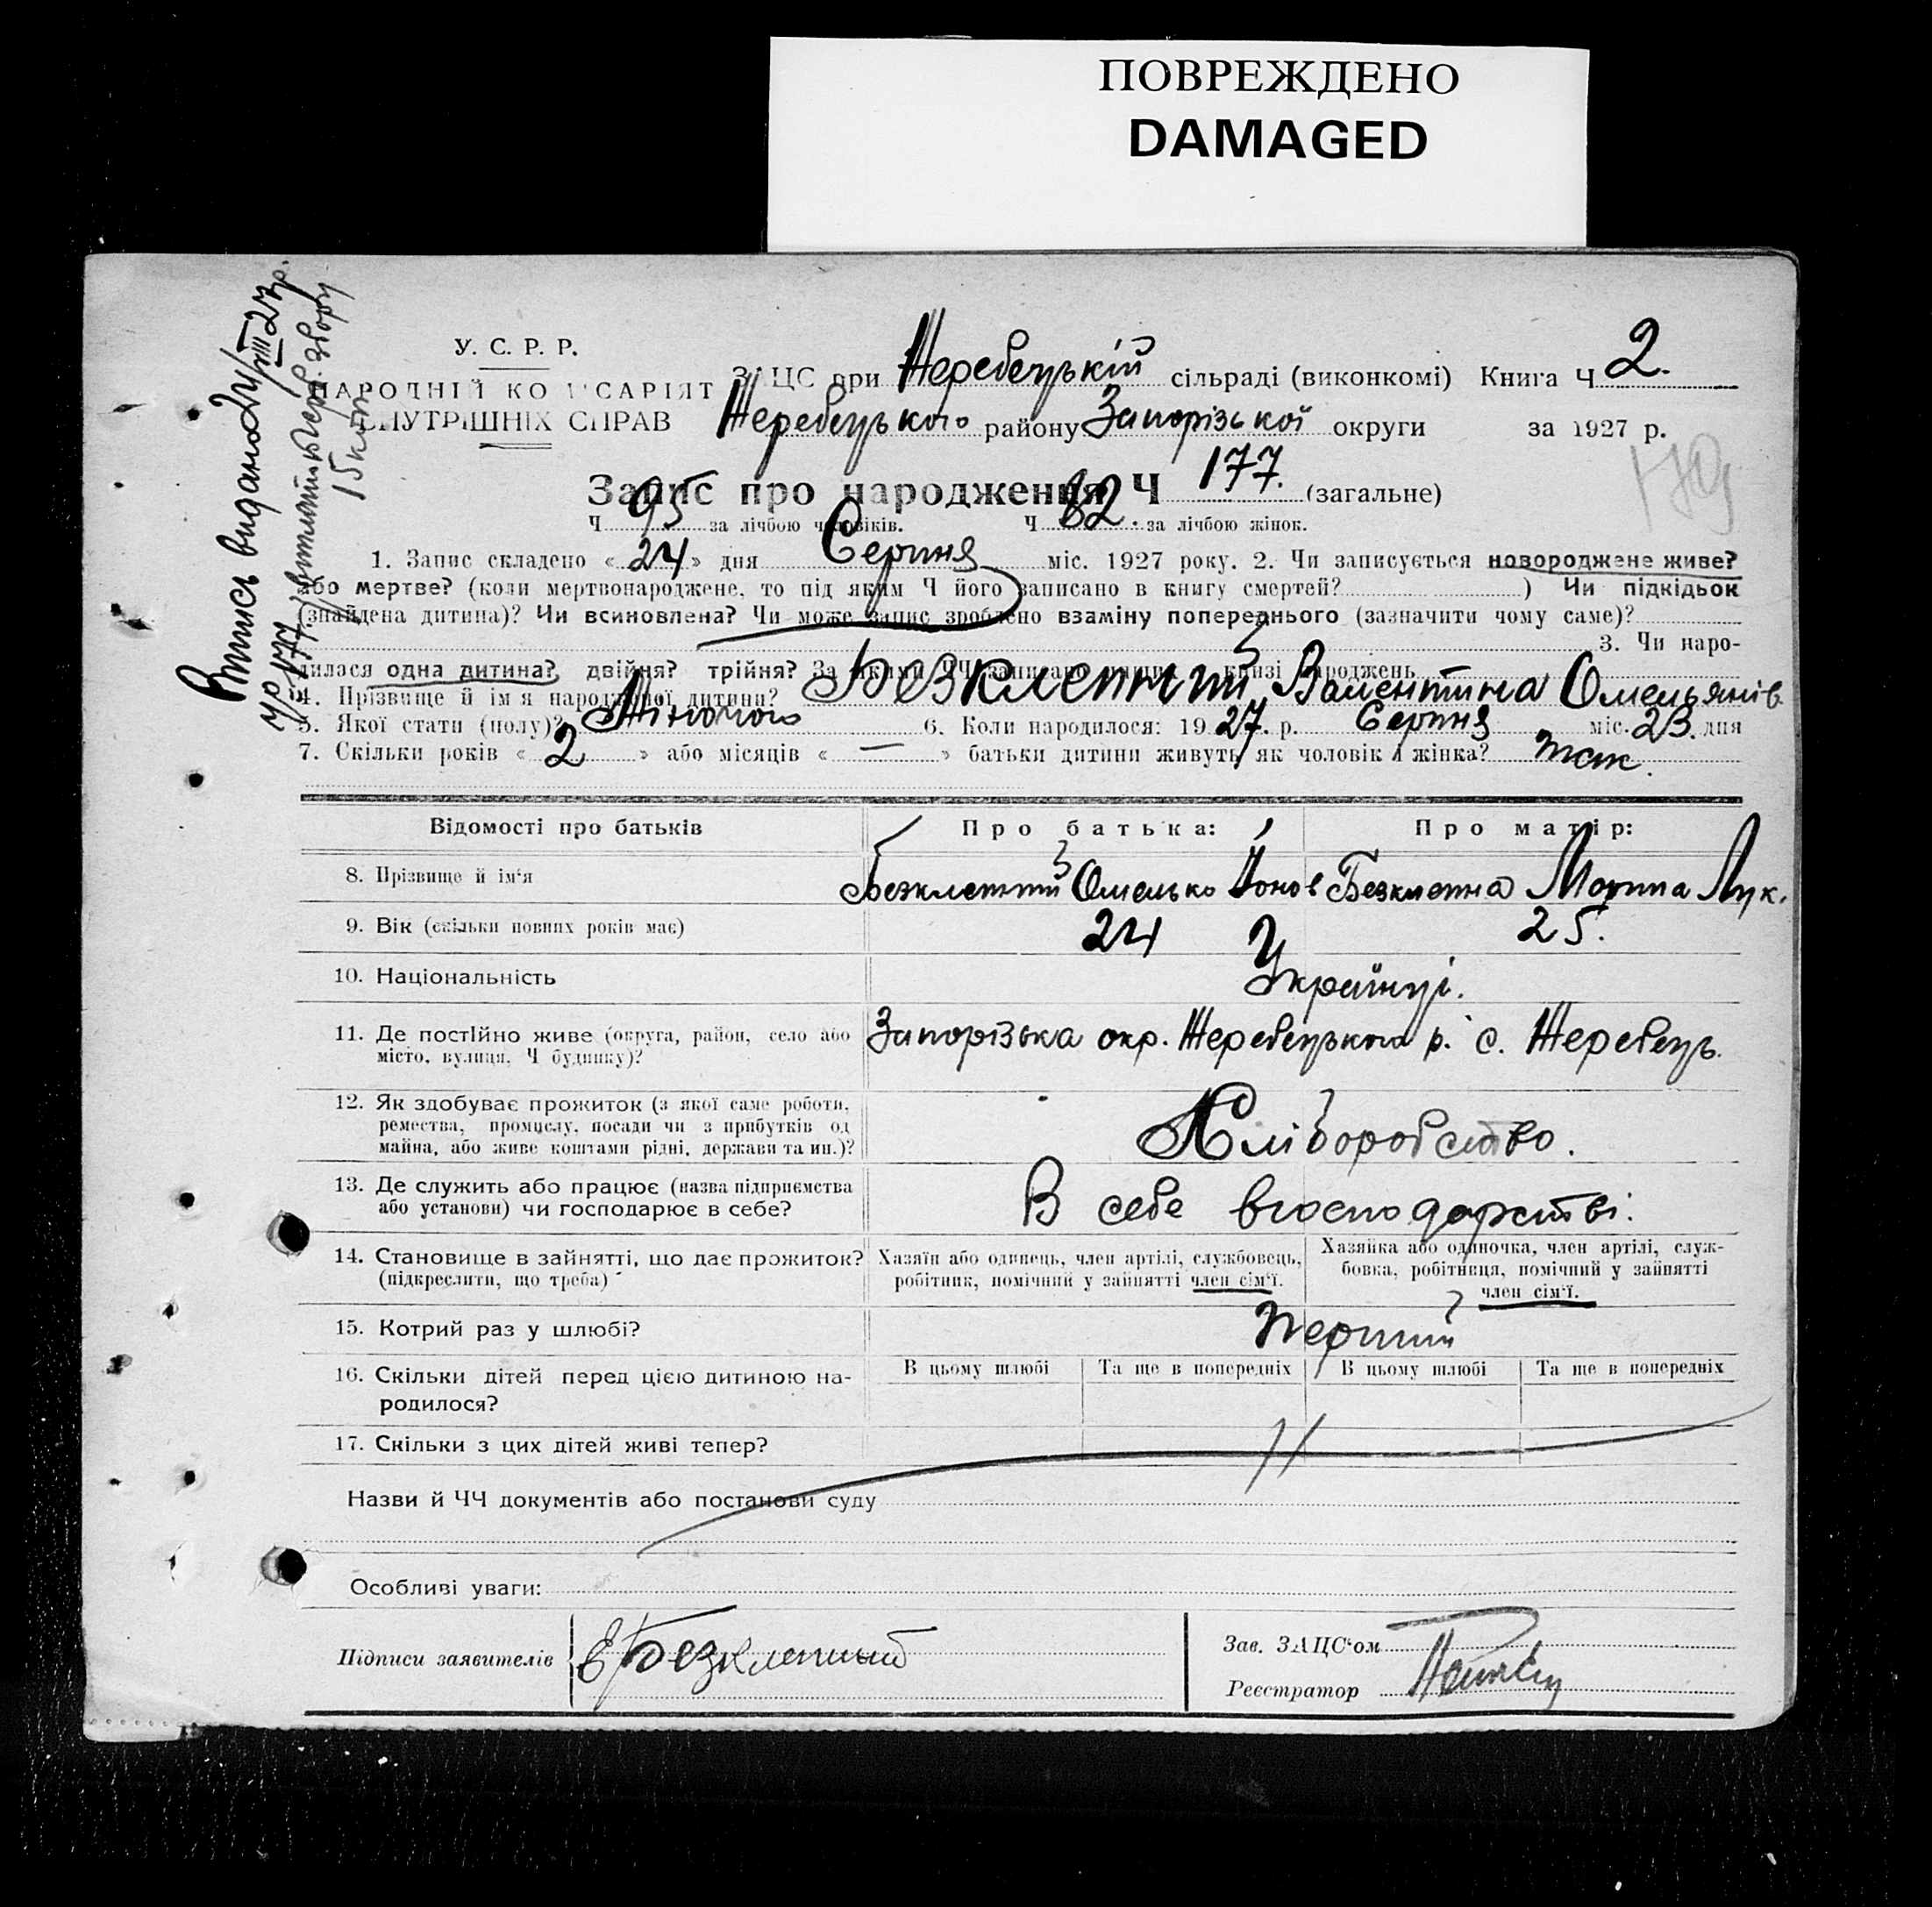 ПОВРЕЖДЕНО
DAMAGED
У. С. Р. Р.
НАРОДНІЙ КОМІСАРІЯТ
ВНУТРІШНІХ СПРАВ
ЗАЦС при Жеребецькій сільраді (виконкомі) Книга Ч 2.
Жеребецького району Запорізької округи за 1927 р.
Запис про народження Ч 177. (загальне)
Ч 95 за лічбою чоловіків. Ч 82. за лічбою жінок.
1. Запис складено «24» дня Серпня міс. 1927 року. 2. Чи записується новороджене живе?
або мертве? (коли мертвонароджене, то під яким Ч його записано в книгу смертей? ) Чи підкідьок
(знайдена дитина)? Чи всиновлена? Чи може запис зроблено взаміну попереднього (зазначити чому саме)?
3. Чи наро-
дилася одна дитина? двійня? трійня? За якими ЧЧ записано народжень
4. Прізвище й ім'я народженої дитини? Безклепний Валентина Омельянів
5. Якої стати (полу)? Жіночого 6. Коли народилося: 1927. р. Серпня міс. 23. дня
7. Скільки років «2» або місяців «—» батьки дитини живуть як чоловік і жінка? так.
Відомості про батьків Про батька: Про матір:
8. Прізвище й ім'я Безклепний Омелько Йонов Безклепна Мотрина Лук.
9. Вік (скільки повних років має) 24 25.
10. Національність Українці.
11. Де постійно живе (округа, район, село або
місто, вулиця, Ч будинку)? Запорізька окр. Жеребецького р. с. Жеребець.
12. Як здобуває прожиток (з якої саме роботи,
ремества, промислу, посади чи з прибутків од
майна, або живе коштами рідні, держави та ин.)? Хліборобство.
13. Де служить або працює (назва підприємства
або установи) чи господарює в себе? В себе вгосподарстві.
14. Становище в зайнятті, що дає прожиток?
(підкреслити, що треба)
Хазяїн або одинець, член артілі, службовець,
робітник, помічний у зайнятті член сім'ї.
Хазяйка або одиночка, член артілі, служ-
бовка, робітниця, помічний у зайнятті
член сім'ї.
15. Котрий раз у шлюбі? Перший
16. Скільки дітей перед цією дитиною на-
родилося?
В цьому шлюбі Та ще в попередніх В цьому шлюбі Та ще в попередніх
17. Скільки з цих дітей живі тепер?
Назви й ЧЧ документів або постанови суду
Особливі уваги:
Підписи заявителів Е Безклепный
Зав. ЗАЦС'ом
Реєстратор
Випись видано 24/VIII 27р.
15 коп.